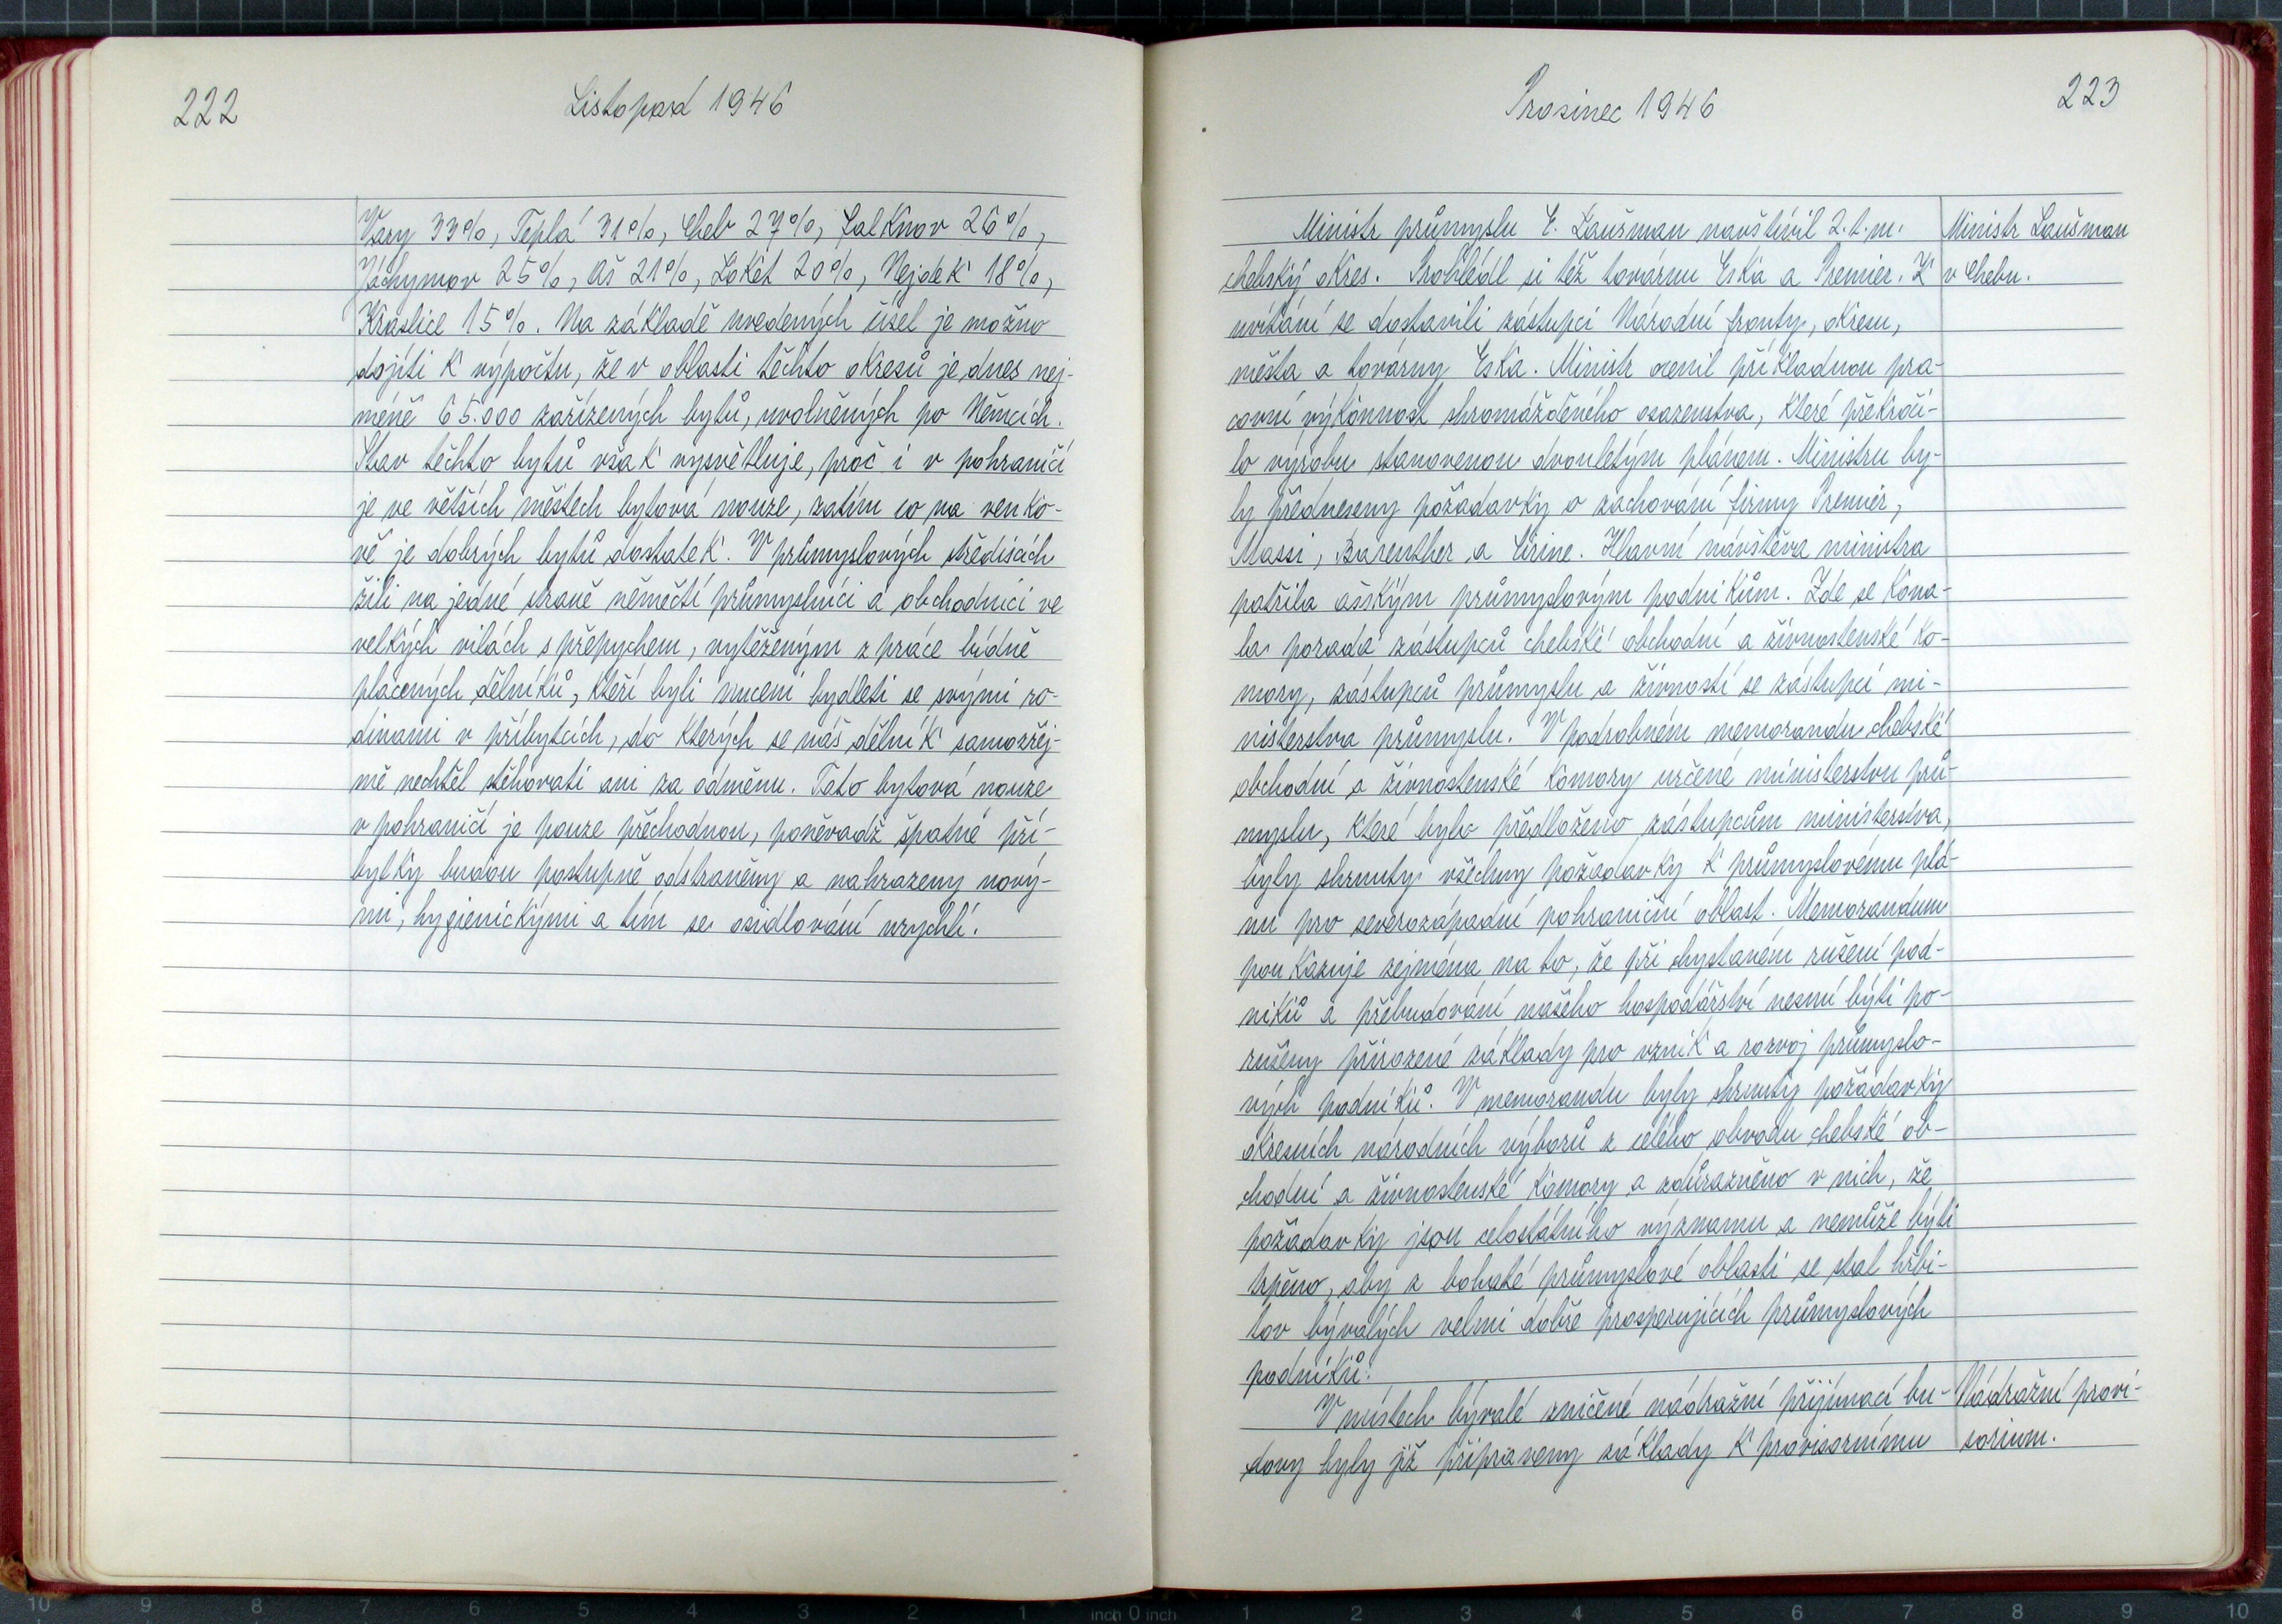 222
Listopad 1946
Vary 33%, Teplá 31%, Cheb 27%, Falknov 26%,
Jáchymov 25%, Aš 21%, Loket 20%, Nejdek 18%,
Kraslice 15%. Na základě uvedených čísel je možno
dojíti k výpočtu, že v oblasti těchto okresů je dnes nej-
méně 65.000 zařízených bytů, uvolněných po Němcích.
Stav těchto bytů však vysvětluje, proč i v pohraničí
je ve větších městech bytová nouze, zatím co na venko-
vě je dobrých bytů dostatek. V průmyslových střediscích
žili na jedné straně němečtí průmyslníci a obchodníci ve
velkých vilách s přepychem, vytěženým z práce bídně
placených dělníků, kteří byli nuceni bydleti se svými ro-
dinami v příbytcích, do kterých se náš dělník samozřej-
mě nechtěl stěhovati ani za odměnu. Tato bytová nouze
v pohraničí je pouze přechodnou, poněvadž špatné pří-
bytky budou postupně odstraněny a nahrazeny nový-
mi, hygienickými a tím se osidlování urychlí.
Prosinec 1946
223
Ministr průmyslu E. Laušman navštívil 2. t. m.
chebský okres. Prohlédl si též továrnu Eska a Premier. K
uvítání se dostavili zástupci Národní fronty, okresu,
města a továrny Eska. Ministr ocenil příkladnou pra-
covní výkonnost shromážděného osazenstva, které překroči-
lo výrobu stanovenou dvouletým plánem. Ministru by-
ly předneseny požadavky o zachování firmy Premier,
Massi, Bareuther a Cirine. Hlavní návštěva ministra
patřila ašským průmyslovým podnikům. Zde se kona-
la porada zástupců chebské obchodní a živnostenské ko-
mory, zástupců průmyslu a živností se zástupci mi-
nisterstva průmyslu. V podrobném memorandu chebské
obchodní a živnostenské komory určené ministerstvu prů-
myslu, které bylo předloženo zástupcům ministerstva,
byly shrnuty všechny požadavky k průmyslovému plá-
nu pro severozápadní pohraniční oblast. Memorandum
poukazuje zejména na to, že při chystaném rušení pod-
niků a přebudování našeho hospodářství nesmí býti po-
rušeny přirozené základy pro vznik a rozvoj průmyslo-
vých podniků. V memorandu byly shrnuty požadavky
okresních národních výborů z celého obvodu chebské ob-
chodní a živnostenské komory a zdůrazněno v nich, že
požadavky jsou celostátního významu a nemůže býti
trpěno, aby z bohaté průmyslové oblasti se stal hřbi-
tov bývalých velmi dobře prosperujících průmyslových
podniků.
V místech bývalé zničené nádražní přijímací bu-
dovy byly již připraveny základy k provisornímu
Ministr Laušman
v Chebu.
Nádražní provi-
sorium.